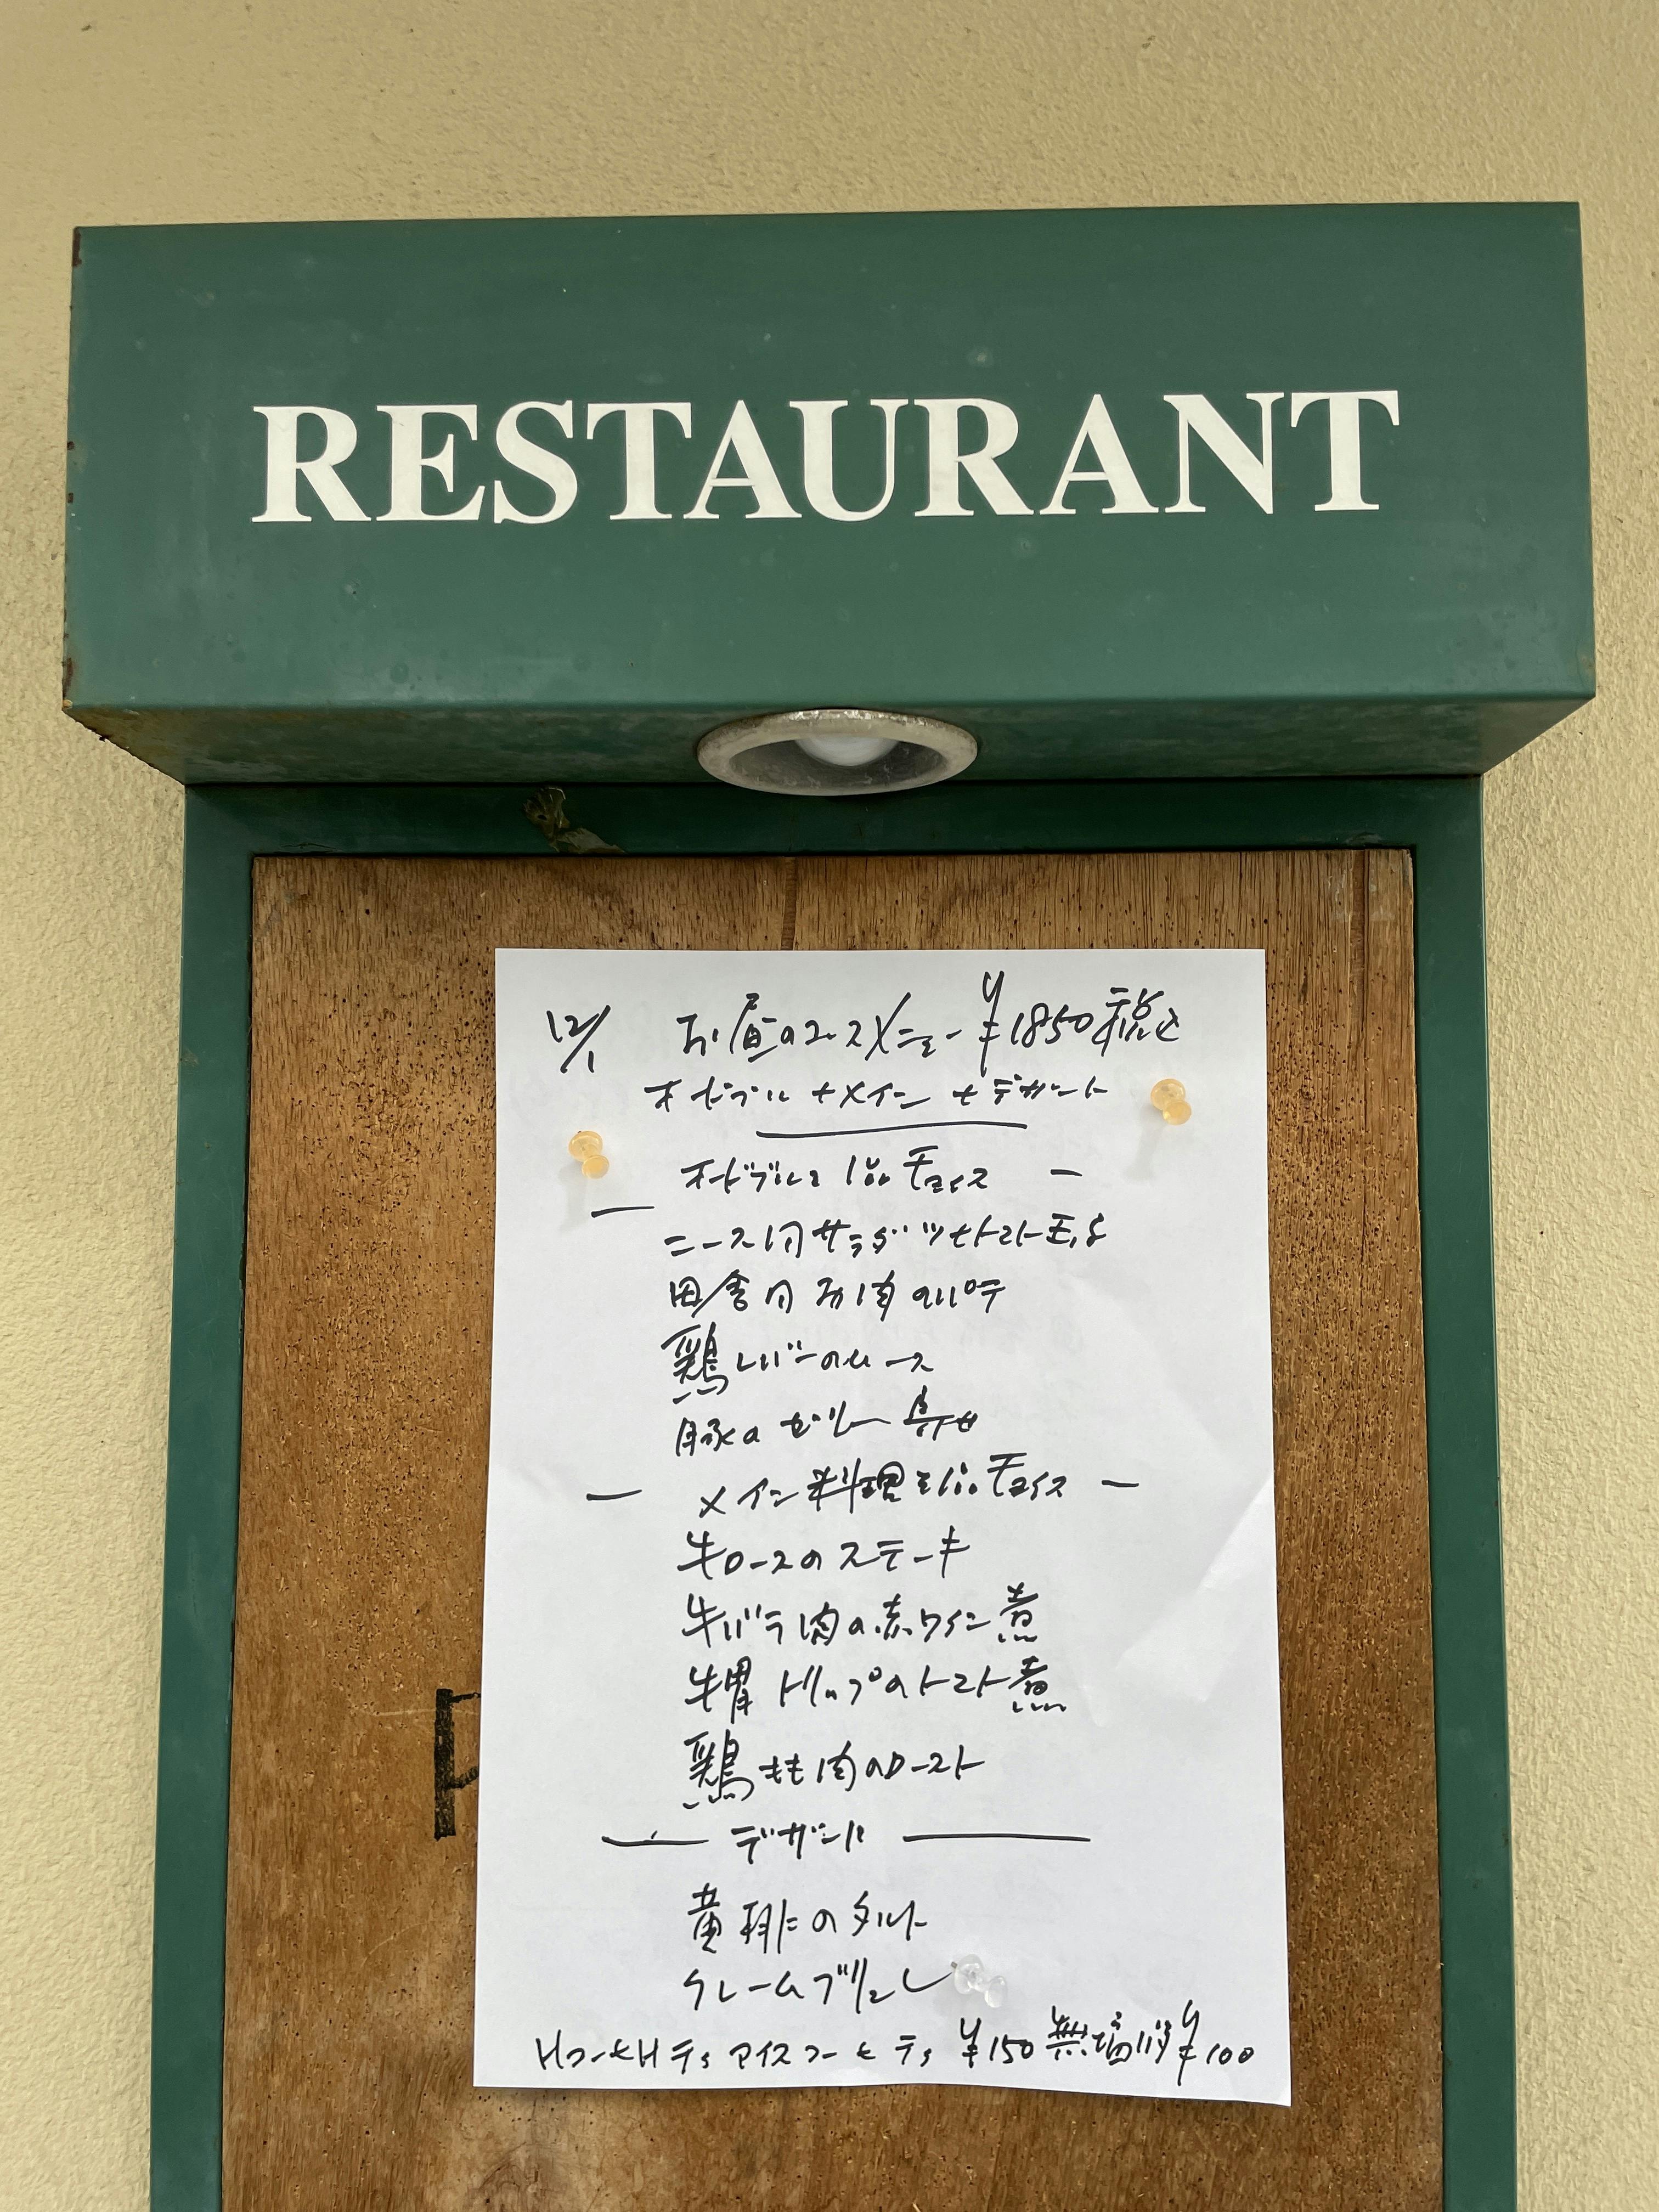 RESTAURANT
12/1 お昼のコースメニュー ¥1850税込
オードブル+メイン+デザート
オードブルを1品チョイス ー
ー
ニース風サラダ ツナトマト玉子
田舎風お肉のパテ
鶏レバーのムース
豚のゼリー寄せ
ー メイン料理を1品チョイス ー
牛ロースのステーキ
牛バラ肉の赤ワイン煮
牛胃トリップのトマト煮
鶏もも肉のロースト
ー デザート ー
黄桃のタルト
クレームブリュレ
HコーヒHティアイスコーヒティ ¥150 無塩バター¥100